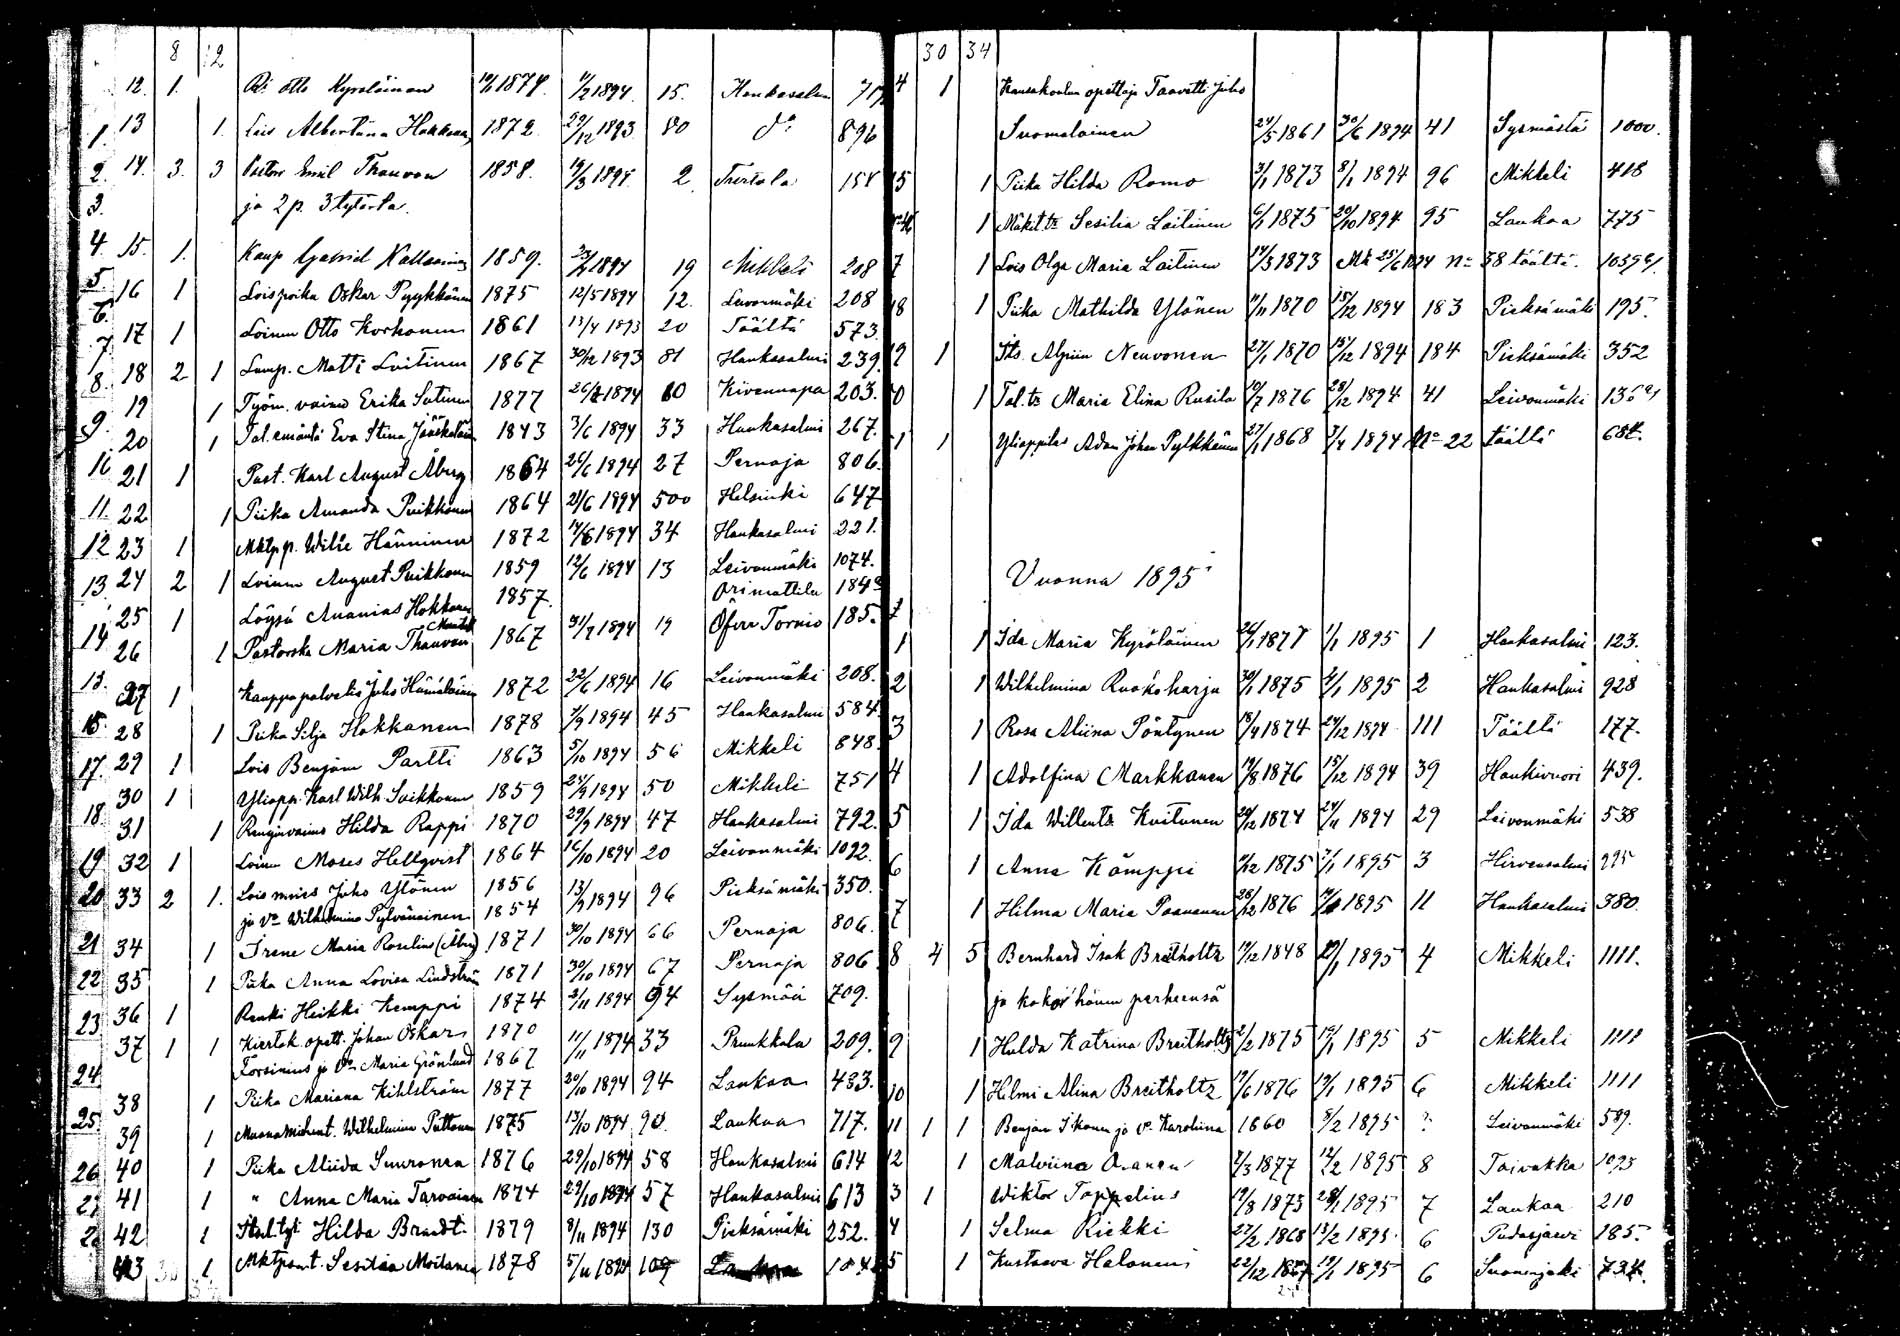 8 12
12. 1. Otto Kyröläinen 1874. 1894. 15. Hankasalmi
1. 13 1. Albertiina Hokkanen 1872. 29/12 1893 80 do 896
2. 14. 3. 3 Pastori Emil Thauvon 1858. 19/3 1894. 2. 154
3. ja 2 p. 3 tytärtä.
4. 15. 1. Kaup Gabriel 1859. 1894 19 Mikkeli 208
5 16 1 Loispoika Oskar Pyykkönen 1875 12/5 1894 12. Leivonmäki 208
6. 17 1 Loinen Otto Korhonen 1861 13/4 1893 20 Täältä 573.
7 18 2 1 Lamp. Matti Laitinen 1867 30/12 1893 81 Hankasalmi 239.
8. 19 1 Työm. vaimo Erika Sutinen 1877 1894 10 Kivennapa 203.
9. 20 1 Tal. emäntä Eva Stina Jääskeläin 1843 3/6 1894 33 Hankasalmi 267.
10 21 1 Past. Karl August Åberg 1864 26/6 1894 27 Pernaja 806
11. 22 1 Piika Amanda Puikkonen 1864 21/6 1894 500 Helsinki 647
12 23 1 Mktp p. Wille Hänninen 1872 14/6 1894 34 Hankasalmi 221.
13 24 2 1 Loinen August Puikkonen 1859 12/6 1894 13 Leivonmäki 1074.
25 1 Ananias Hokkanen 1857. Orimattila 184
14 26 1 Pastorska Maria Thauvon 1867 31/7 1894 19 Öfver Tornio 185.
15. 27 1 Kauppapalvelia Juho Hämäläinen 1872 22/6 1894 16 Leivonmäki 208.
28 1 Piika Silja Hokkanen 1878 7/9 1894 45 Hankasalmi 584.
17. 29 1 Lois Benjam Partti 1863 5/10 1894 56 Mikkeli 848.
30 1 Yliopp. Karl Wilh. Soikkonen 1859 24/9 1894 50 Mikkeli 751
18. 31 1 Renginvaimo Hilda Rappi 1870 29/9 1894 47 Hankasalmi 792.
19 32 1 Loinen Moses Hellqvist 1864 16/10 1894 20 Leivonmäki 1092.
20 33 2 1. Lois mies Juho Ylönen 1856 13/9 1894 96 Pieksämäki 350.
ja vo Wilhelmina Pylvänäinen 1854
21 34 1 Irene Maria Roselius (Åberg) 1871 30/10 1894 66 Pernaja 806.
22 35 1 Piika Anna Lovisa Lindström 1871 30/10 1894 67 Pernaja 806
23 36 1 Renki Heikki Kemppi 1874 2/11 1894 94 Sysmää 709.
37 1 1 Kiertok. opett. Johan Oskar 1870 11/11 1894 33 Prunkkala 209.
24 Forsinius ja vo Maria Grönlund 1867
38 1 Piika Mariana Kihlström 1877 20/10 1894 94 Laukaa 433.
25. 39 1 Wilhelmina Puttonen 1875 13/10 1894 90. Laukaa 717.
26 40 1 Piika Aliida Suuronen 1876 29/10 1894 58 Hankasalmi 614
27 41 1 " Anna Maria Tarvainen 1874 29/10 1894 57 Hankasalmi 613
28 42 1 Hilda Brandt 1879 8/11 1894 130 Pieksämäki 252.
43 1 Sesilia Moilanen 1878 5/11 1894 109
30 34
4 1 Kansakoulun opettaja Taavetti Juho
Suomalainen 24/5 1861 30/6 1894 41 Sysmästä 1000.
15 1 Piika Hilda Romo 3/1 1873 8/1 1894 96 Mikkeli 418
1 Mäkit. tr Sesilia Laitinen 6/1 1875 20/10 1894 95 Laukaa 775
7 1 Lois Olga Maria Laitinen 14/3 1873 25/6 1894 No 38 täältä. 1039
18 1 Piika Mathilda Ylönen 11/11 1870 15/12 1894 183 Pieksämäki 195.
19 1 Itls. Alpiin Neuvonen 27/1 1870 15/12 1894 184 Pieksämäki 352
0 1 Tal. tr Maria Elina Rusila 19/7 1876 28/12 1894 41 Leivonmäki 136
1 1 Ylioppilas Adam Johan Pylkkänen 27/1 1868 3/4 1894 No 22 täältä 684.
Vuonna 1895
1 1 Ida Maria Kyröläinen 1877 1/1 1895 1 Hankasalmi 123.
2 1 Wilhelmina Ruokoharju 30/1 1875 4/1 1895 2 Hankasalmi 928
3 1 Rosa Aliina Pöntynen 18/4 1874 24/12 1894 111 Täältä 177.
4 1 Adolfina Markkanen 19/8 1876 15/12 1894 39 Haukivuori 439.
5 1 Ida Kuitunen 20/12 1874 24/11 1894 29 Leivonmäki 538
6 1 Anna Kämppi 1875 7/1 1895 3 Hirvensalmi 995
7 1 Hilma Maria Paananen 28/12 1876 1895 11 Hankasalmi 380.
8 4 5 Bernhard Isak Breitholtz 19/12 1848 19/1 1895 4 Mikkeli 1111.
ja koko hänen perheensä
9 1 Hulda Katrina Breitholtz 2/2 1875 19/1 1895 5 Mikkeli 1111
10 1 Helmi Alina Breitholtz 19/6 1876 19/1 1895 6 Mikkeli 1111
11 1 1 Benjam Ikonen ja vo Karoliina 1860 8/2 1895 ? Leivonmäki 589.
12 1 Malviina 7/3 1877 14/2 1895 8 Toivakka 1095
3 1 Wiktor Toppelius 19/8 1873 28/1 1895 7 Laukaa 210
4 1 Selma Riekki 27/2 1868 13/2 1895. 6 Pudasjärvi 185.
5 1 Kustaava Halonen 22/12 1867 19/1 1895 6 Suonenjoki 734.